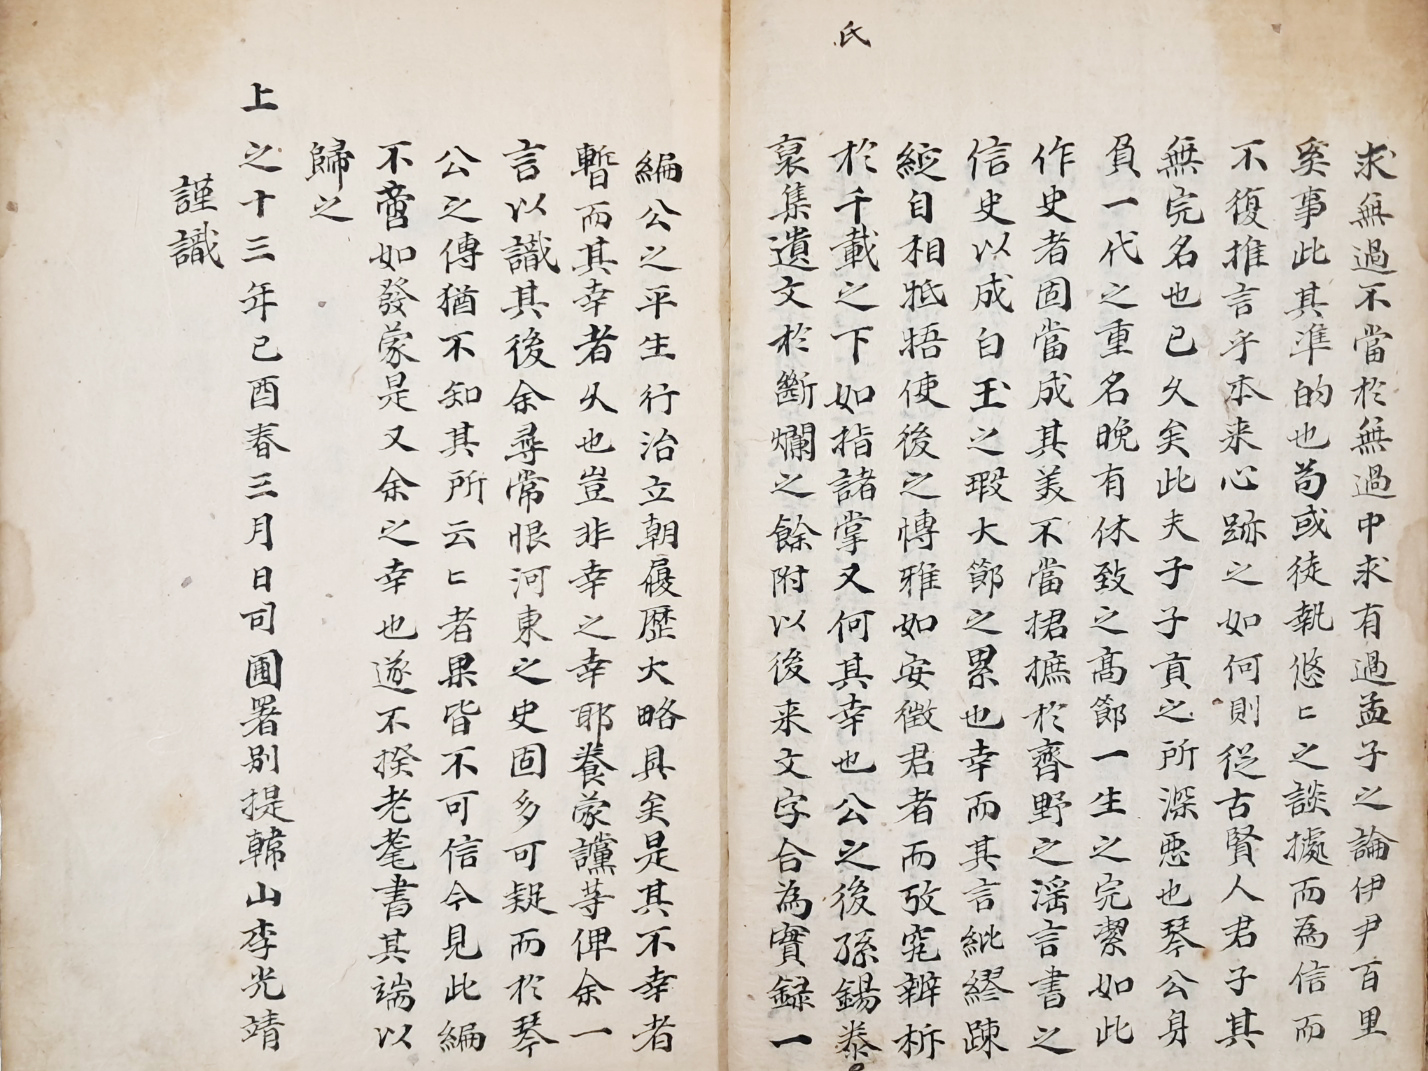 求無過不當於無過中求有過孟子之論伊尹百里
奚事此其準的也苟或徒執悠〻之談據而為信而
不復推言乎本来心跡之如何則從古賢人君子其
無完名也已久矣此夫子子貢之所深惡也琴公身
負一代之重名晩有休致之高節一生之完潔如此
作史者固當成其美不當捃摭於齊野之滛言書之
信史以成白玉之瑕大節之累也幸而其言紕繆踈
綻自相牴牾使後之愽雅如安徵君者而攷究辨析
於千載之下如指諸掌又何其幸也公之後孫錫泰
氏
裒集遺文於斷爛之餘附以後来文字合為實録一
編公之平生行治立朝履歷大略具矣是其不幸者
暫而其幸者久也豈非幸之幸耶養蒙讜䓁俾余一
言以識其後余尋常恨河東之史固多可疑而於琴
公之傳猶不知其所云〻者果皆不可信今見此編
不啻如發蒙是又余之幸也遂不揆老耄書其端以
歸之
上之十三年己酉春三月日司圃署別提韓山李光靖
謹識